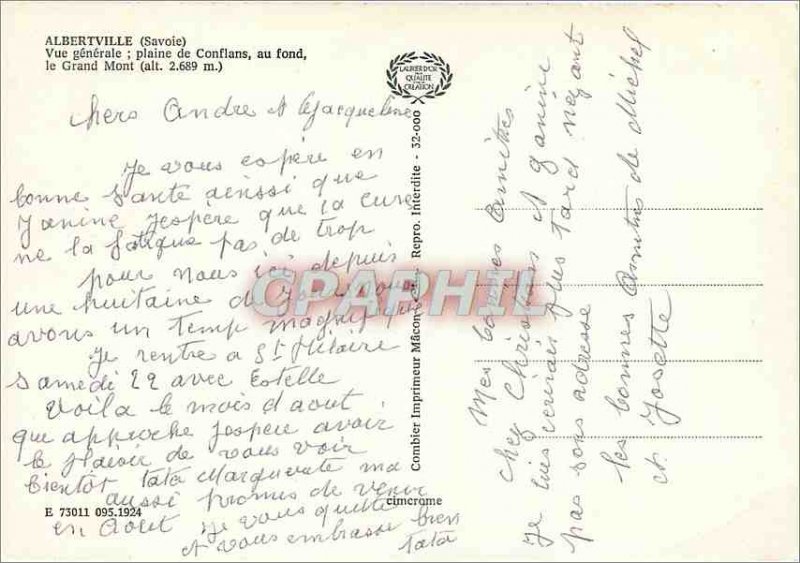 ALBERTVILLE (Savoie)
Vue générale ; plaine de Conflans, au fond,
le Grand Mont (alt. 2.689 m.)
LAURIER D'OR
DE LA
QUALITÉ
CRÉATION
chers Andre et Jacqueline
Je vous espère en
bonne santé ainssi que
Janine Jespère que la cure
ne la fatigue pas de trop
pour nous ici depuis
une huitaine de Jours nous
avons un temp magnifique
Je rentre a St Hilaire
samedi 22 avec Estelle
Voila le mois d aout
que approche Jespere avoir
le plaisir de vous voir
bientôt tata Marguerete ma
aussi promis de venir
en Aout Je vous quitte
et vous embrasse bien
tata
E 73011 095.1924
Combier Imprimeur Mâcon Repro. Interdite - 32-000
cimcrome
CPAPHIL
Mes bonnes Amitiés
chez Christian et Janine
Je luis ecrirais plus tard nayant
pas sons adresse
les bonnes Amitiés de Michel
et Josette